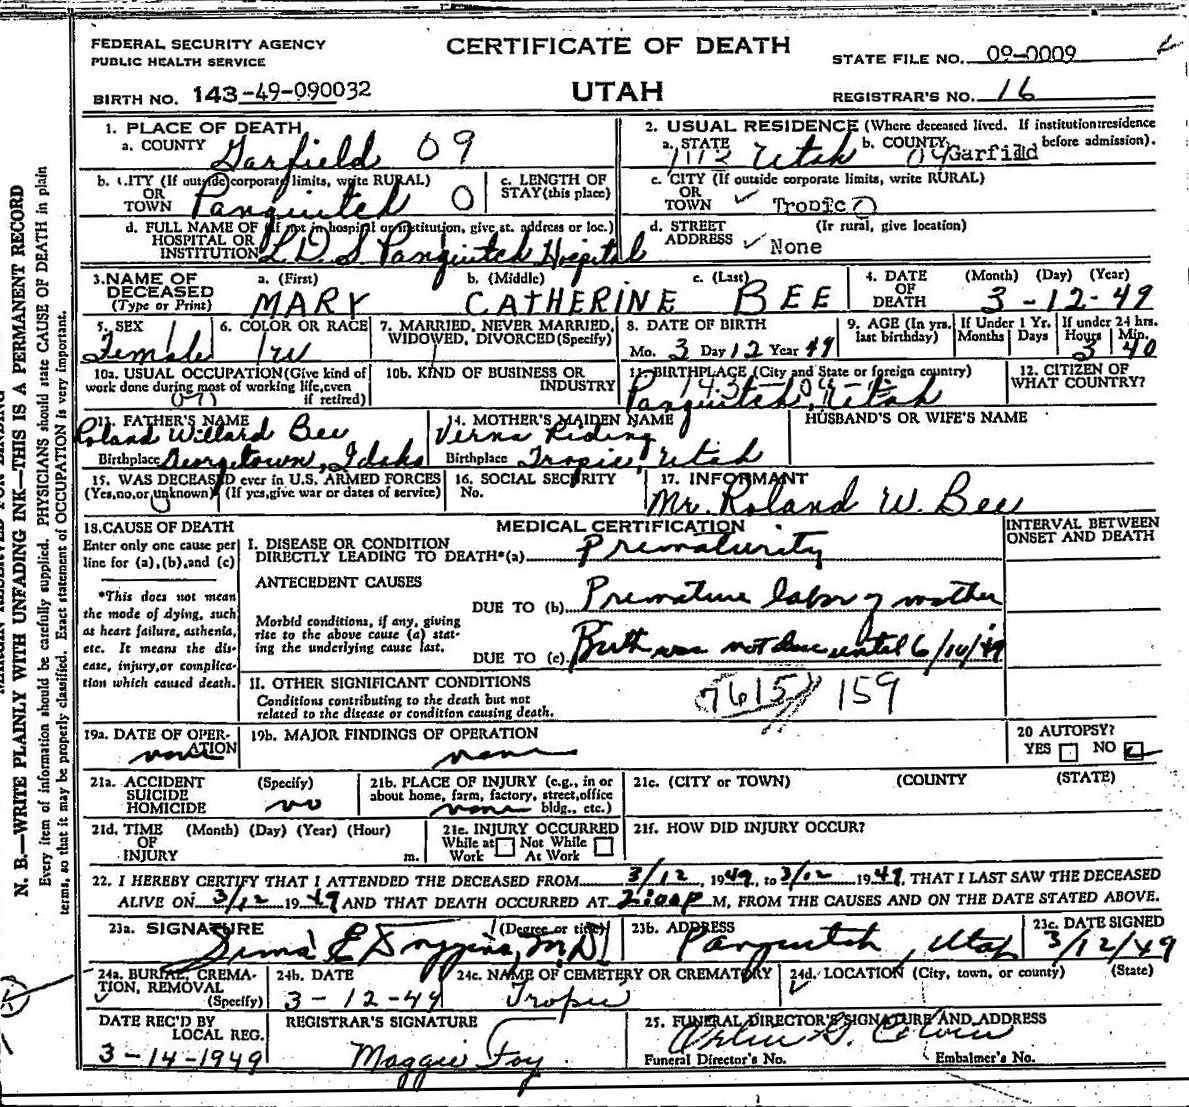 FEDERAL SECURITY AGENCY
PUBLIC HEALTH SERVICE
BIRTH NO. 143-49-090032
CERTIFICATE OF DEATH
UTAH
STATE FILE NO. 09-0009
REGISTRAR'S NO. 16
1. PLACE OF DEATH
a. COUNTY Garfield 09
2. USUAL RESIDENCE (Where deceased lived. If institution: residence before admission).
a. STATE Utah b. COUNTY Garfield
b. CITY (If outside corporate limits, write RURAL)
OR
TOWN Panguitch 0
c. LENGTH OF
STAY (this place)
c. CITY (If outside corporate limits, write RURAL)
OR
TOWN Tropic 0
d. FULL NAME OF (If not in hospital or institution, give st. address or loc.)
HOSPITAL OR
INSTITUTION L.D.S. Panguitch Hospital
d. STREET (If rural, give location)
ADDRESS None
3. NAME OF
DECEASED
(Type or Print)
a. (First) b. (Middle) c. (Last)
MARY CATHERINE BEE
4. DATE (Month) (Day) (Year)
OF
DEATH 3-12-49
5. SEX
Female 1
6. COLOR OR RACE
W
7. MARRIED, NEVER MARRIED,
WIDOWED, DIVORCED (Specify)
1
8. DATE OF BIRTH
Mo. 3 Day 12 Year 49
9. AGE (In yrs. last birthday)
If Under 1 Yr.
Months Days
If under 24 hrs.
Hours Min.
3 40
10a. USUAL OCCUPATION (Give kind of
work done during most of working life, even
if retired)
10b. KIND OF BUSINESS OR
INDUSTRY
11. BIRTHPLACE (City and State or foreign country)
Panguitch, Utah
12. CITIZEN OF
WHAT COUNTRY?
13. FATHER'S NAME
Roland Willard Bee
Birthplace Georgetown, Idaho
14. MOTHER'S MAIDEN NAME
Verna Riding
Birthplace Tropic, Utah
HUSBAND'S OR WIFE'S NAME
15. WAS DECEASED ever in U.S. ARMED FORCES
(Yes, no, or unknown) (If yes, give war or dates of service)
16. SOCIAL SECURITY
No.
17. INFORMANT
Mr. Roland W. Bee
18. CAUSE OF DEATH
Enter only one cause per
line for (a), (b), and (c)
*This does not mean
the mode of dying, such
as heart failure, asthenia,
etc. It means the dis-
ease, injury, or complica-
tion which caused death.
MEDICAL CERTIFICATION
INTERVAL BETWEEN
ONSET AND DEATH
I. DISEASE OR CONDITION
DIRECTLY LEADING TO DEATH*(a) Prematurity
ANTECEDENT CAUSES
DUE TO (b) Premature labor of mother
Morbid conditions, if any, giving
rise to the above cause (a) stat-
ing the underlying cause last.
DUE TO (c) Birth was not due until 6/10/49
II. OTHER SIGNIFICANT CONDITIONS
Conditions contributing to the death but not
related to the disease or condition causing death.
7615 159
19a. DATE OF OPER-
ATION
none
19b. MAJOR FINDINGS OF OPERATION
none
20 AUTOPSY?
YES NO
21a. ACCIDENT (Specify)
SUICIDE
HOMICIDE no
21b. PLACE OF INJURY (e.g., in or
about home, farm, factory, street, office
bldg., etc.)
none
21c. (CITY or TOWN) (COUNTY) (STATE)
21d. TIME (Month) (Day) (Year) (Hour)
OF
INJURY m.
21e. INJURY OCCURRED
While at Not While
Work At Work
21f. HOW DID INJURY OCCUR?
22. I HEREBY CERTIFY THAT I ATTENDED THE DECEASED FROM 3/12, 1949, to 3/12 1949, THAT I LAST SAW THE DECEASED
ALIVE ON 3/12 1949 AND THAT DEATH OCCURRED AT 2:00 P M, FROM THE CAUSES AND ON THE DATE STATED ABOVE.
23a. SIGNATURE (Degree or title)
Sims E Duggins, M.D.
23b. ADDRESS
Panguitch, Utah
23c. DATE SIGNED
3/12/49
24a. BURIAL, CREMA-
TION, REMOVAL
(Specify)
24b. DATE
3-12-49
24c. NAME OF CEMETERY OR CREMATORY
Tropic
24d. LOCATION (City, town, or county) (State)
DATE REC'D BY
LOCAL REG.
3-14-1949
REGISTRAR'S SIGNATURE
Maggie Foy
25. FUNERAL DIRECTOR'S SIGNATURE AND ADDRESS
Funeral Director's No. Embalmer's No.
N. B.—WRITE PLAINLY WITH UNFADING INK—THIS IS A PERMANENT RECORD
Every item of information should be carefully supplied. PHYSICIANS should state CAUSE OF DEATH in plain
terms, so that it may be properly classified. Exact statement of OCCUPATION is very important.